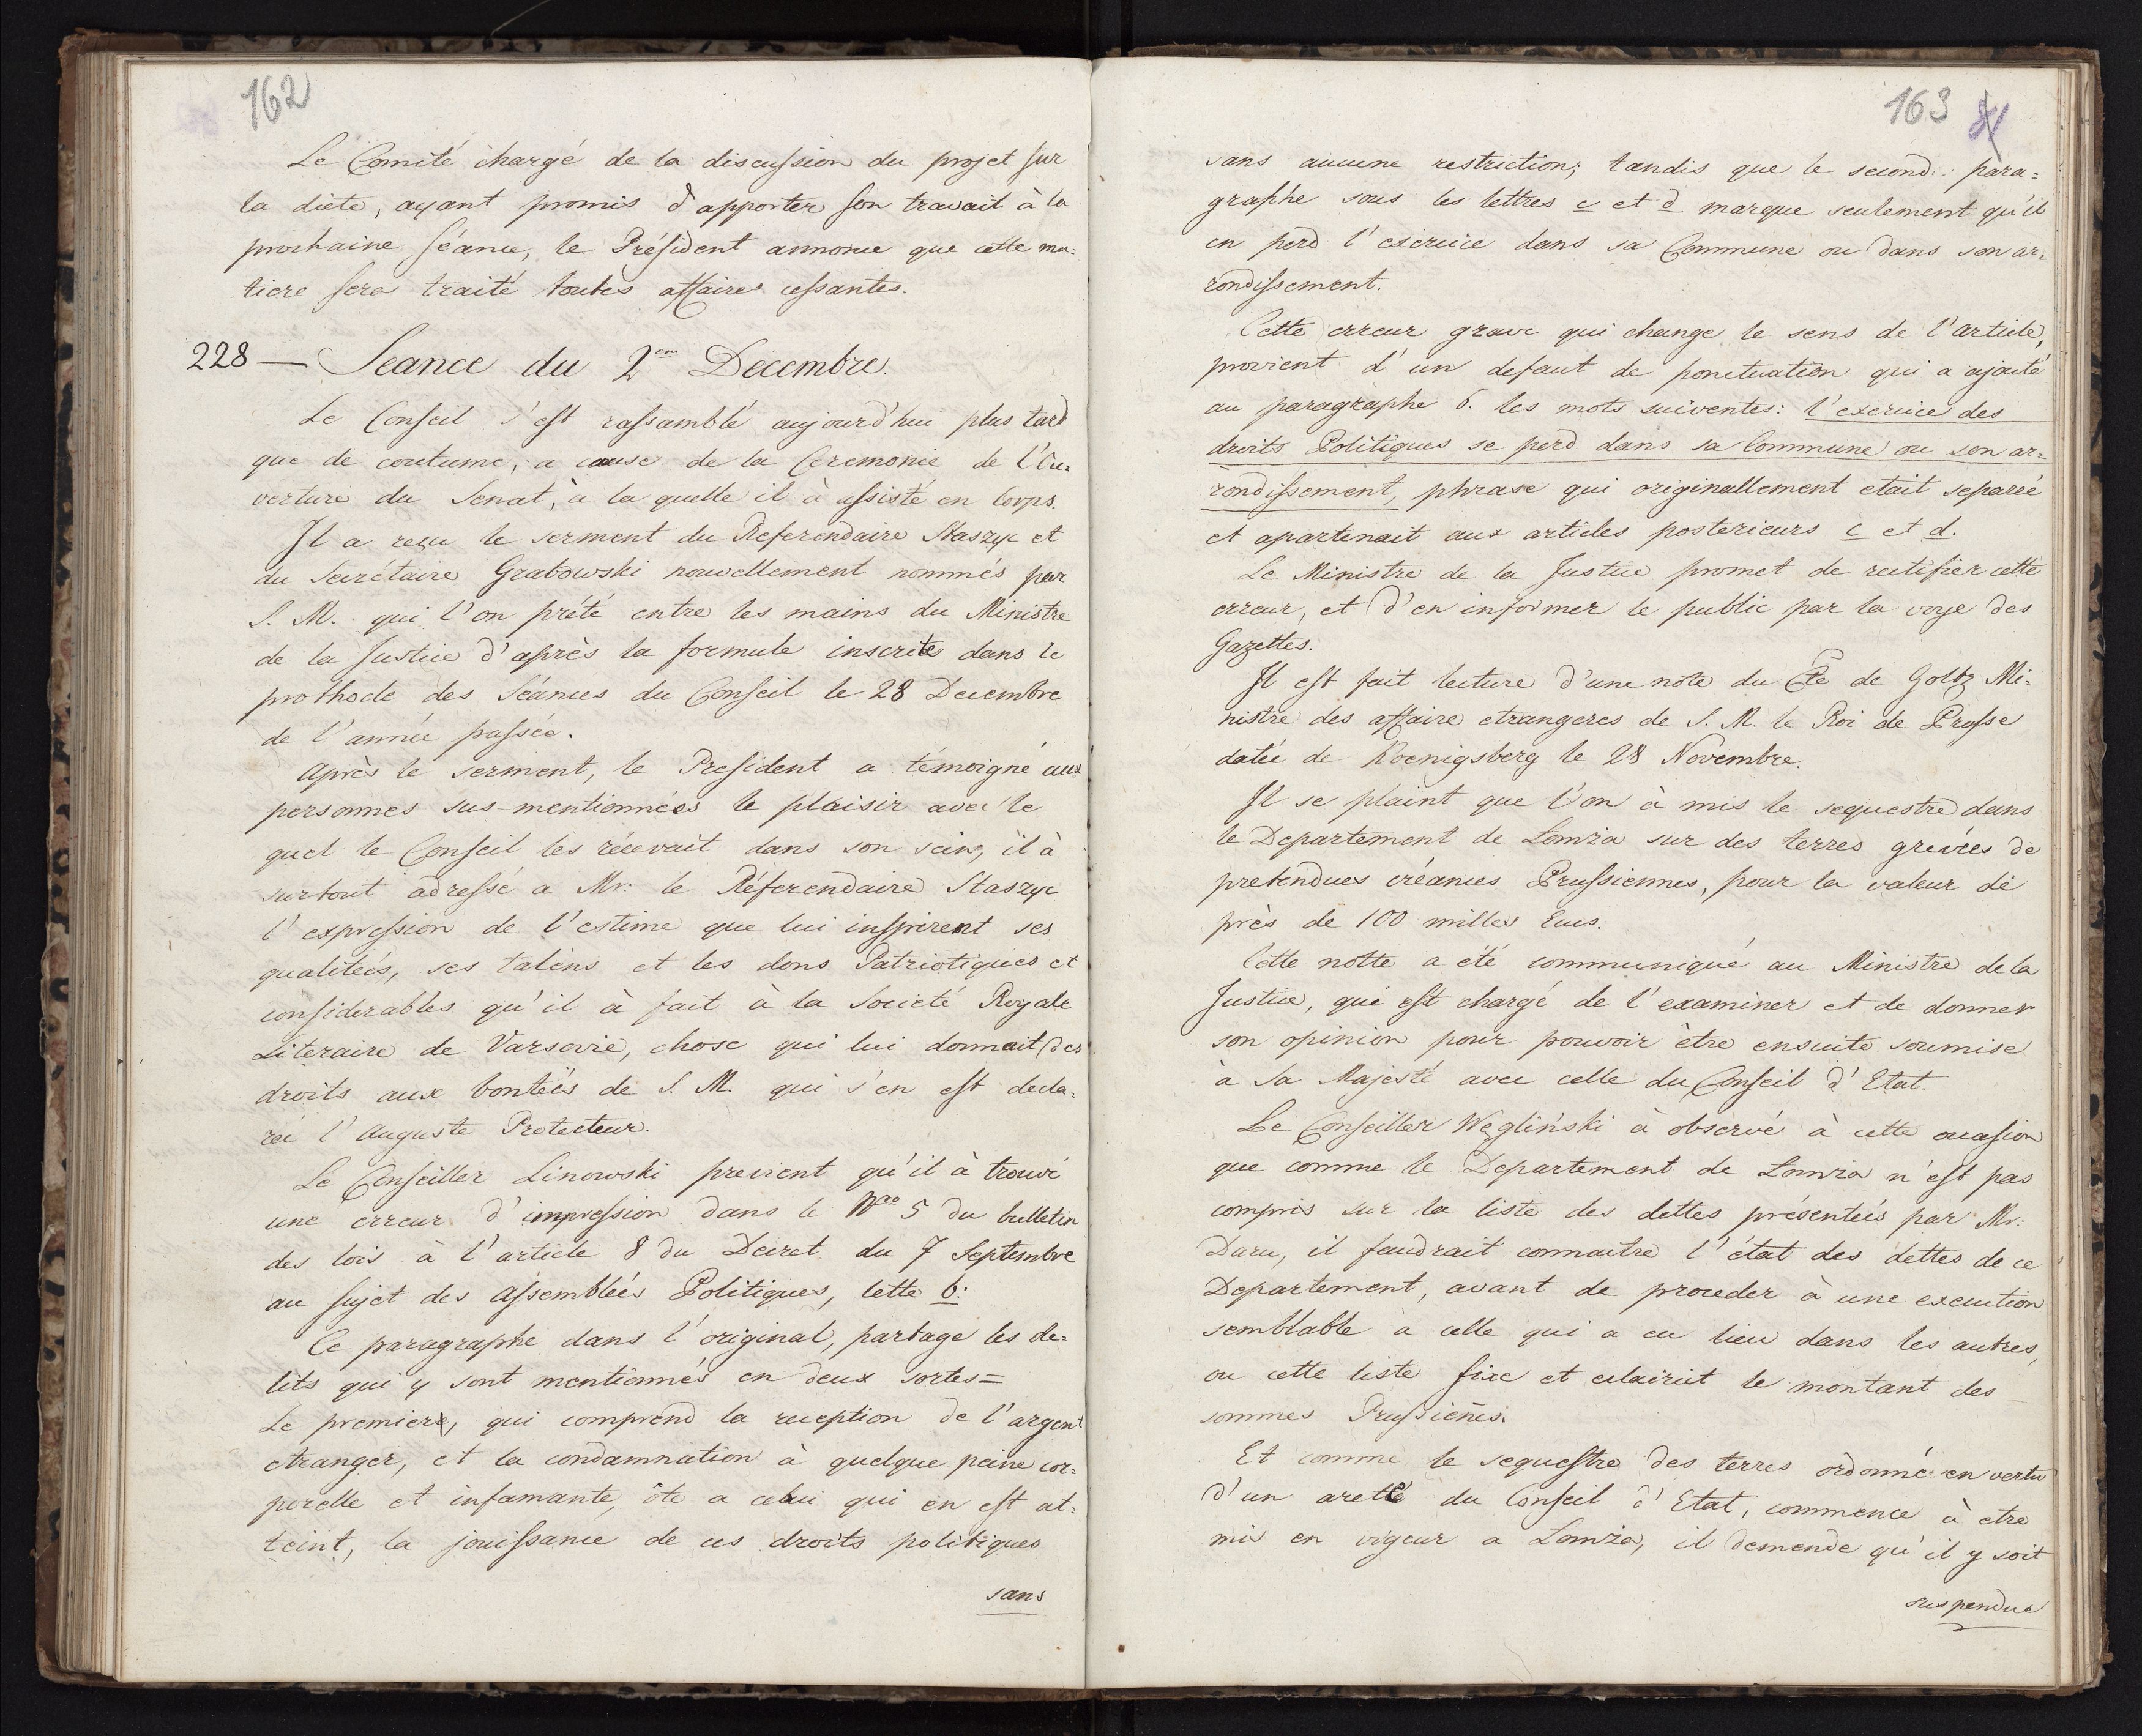 162
Le Comité chargé de la discussion du projet sur
la diéte, ayant promis d'apporter son travail à la
prochaine séance, le Président annonce que cette ma=
tiere sera traité toutes affaires cessantes.
228 — Seance du 2em Decembre.
Le Conseil s'est rassamblé aujourd'hui plus tard
que de coutume, a cause de la Ceremonie de l'Ou=
verture du Senat, à la quelle il à assisté en Corps.
Il a reçu le serment du Referendaire Staszyc et
du Secrétaire Grabowski nouvellement nommés par
S. M. qui l'on prété entre les mains du Ministre
de la Justice d'après la formule inscrite dans le
prothocle des Séances du Conseil le 28 Decembre
de l'année passée.
Après le serment, le President a témoigné aux
personnes sus-mentionnées le plaisir avec le
quel le Conseil les récevait dans son sein, il à
surtout adressé a Mr: le Réferendaire Staszyc
l'expression de l'estime que lui inspirent ses
qualiteés, ses talens et les dons Patriotiques et
considerables qu'il à fait à la Societé Royale
Literaire de Varsovie, chose qui lui donnait des
droits aux bonteés de S. M. qui s'en est decla=
ré l'Auguste Protecteur.
Le Conseiller Linowski previent qu'il à trouvé
une erreur d'impression dans le Nro 5 du bulletin
des lois à l'article 8 du Decret du 7 Septembre
au sujet des Assemblées Politiques, lette b:
Ce paragraphe dans l'original, partage les de=
lits qui y sont mentionnés en deux sortes=
Le premier, qui comprend la reception de l'argent
etranger, et la condamnation à quelque peine cor=
porelle et infamante, ôte a celui qui en est at=
teint, la jouissance de ces droits politiques
sans
163 81
sans aucune restriction; tandis que le second para=
graphe sous les lettres c et d marque seulement qu'il
en perd l'exercice dans sa Commune ou dans son ar=
rondissement.
Cette erreur grave qui change le sens de l'article,
provient d'un defaut de ponctuation qui a ajouté
au paragraphe 6. les mots suiventes: l'exercice des
droits Politiques se perd dans sa Commune ou son ar=
rondissement, phrase qui originallement etait separée
et apartenait aux articles posterieurs c et d.
Le Ministre de la Justice promet de rectifier cette
erreur, et d'en informer le public par la voye des
Gazettes.
Il est fait lecture d'une note du Cte de Goltz Mi=
nistre des affaire etrangeres de S. M. le Roi de Prusse
datée de Koenigsberg le 28 Novembre.
Il se plaint que l'on à mis le sequestre dans
le Departement de Lomża sur des terres grevées de
pretendues créances Prussiennes, pour la valeur de
près de 100 milles Ecus.
Cette notte a été communiqué au Ministre de la
Justice, qui est chargé de l'examiner et de donner
son opinion pour pouvoir être ensuite soumise
à Sa Majesté avec celle du Conseil d'Etat.
Le Conseiller Węgliński à observé à cette occasion
que comme le Departement de Lomża n'est pas
compris sur la liste des dettes présenteés par Mr:
Daru, il faudrait connaitre l'état des dettes de ce
Departement, avant de proceder à une execution
semblable à celle qui a eu lieu dans les autres,
ou cette liste fixe et eclaircit le montant des
sommes Prussieñes.
Et comme le sequestre des terres ordonné en vertu
d'un aretté du Conseil d'Etat, commence à etre
mis en vigeur a Lomża, il demende qu'il y soit
suspendue